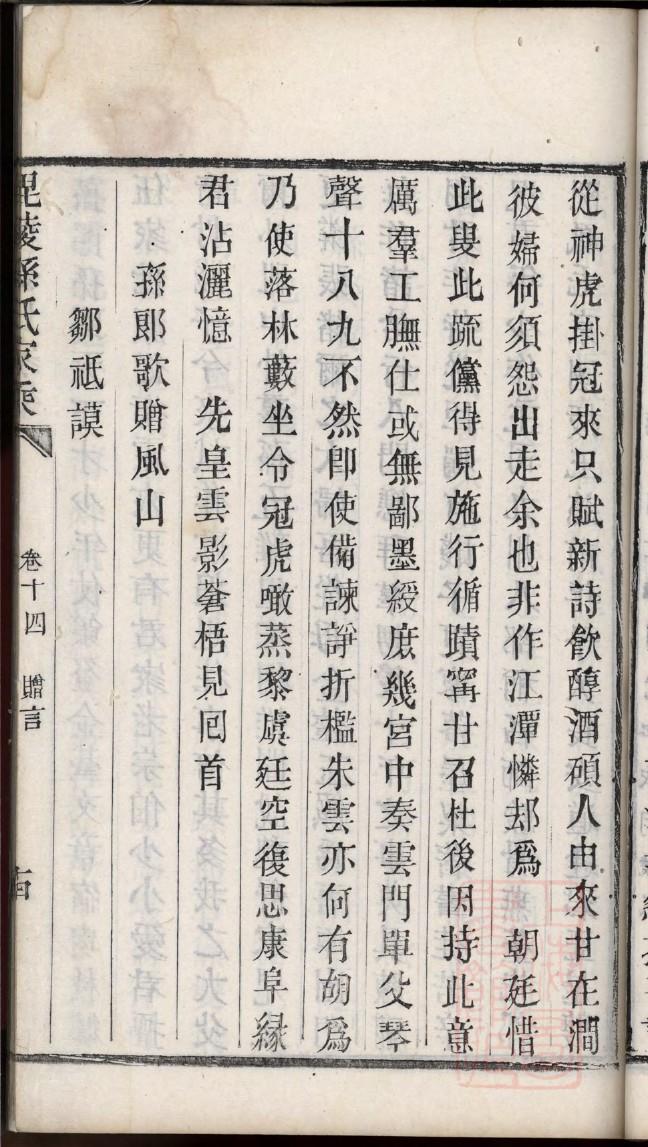 從神虎掛冠來只賦新詩飮醇酒碩人由來甘在澗
彼婦何須怨出走余也非作江潭憐却爲　朝廷惜
此叟此疏儻得見施行循蹟寗甘召杜後因持此意
厲羣工膴仕或無鄙墨綬庶幾宮中奏雲門單父琴
聲十八九不然卽使備諫諍折檻朱雲亦何有胡爲
乃使落林藪坐令冠虎噉蒸黎虞廷空復思康阜緣
君沾灑憶　先皇雲影蒼梧見囘首
孫郞歌贈風山
鄒祗謨
毘陵孫氏家乘
卷十四　贈言